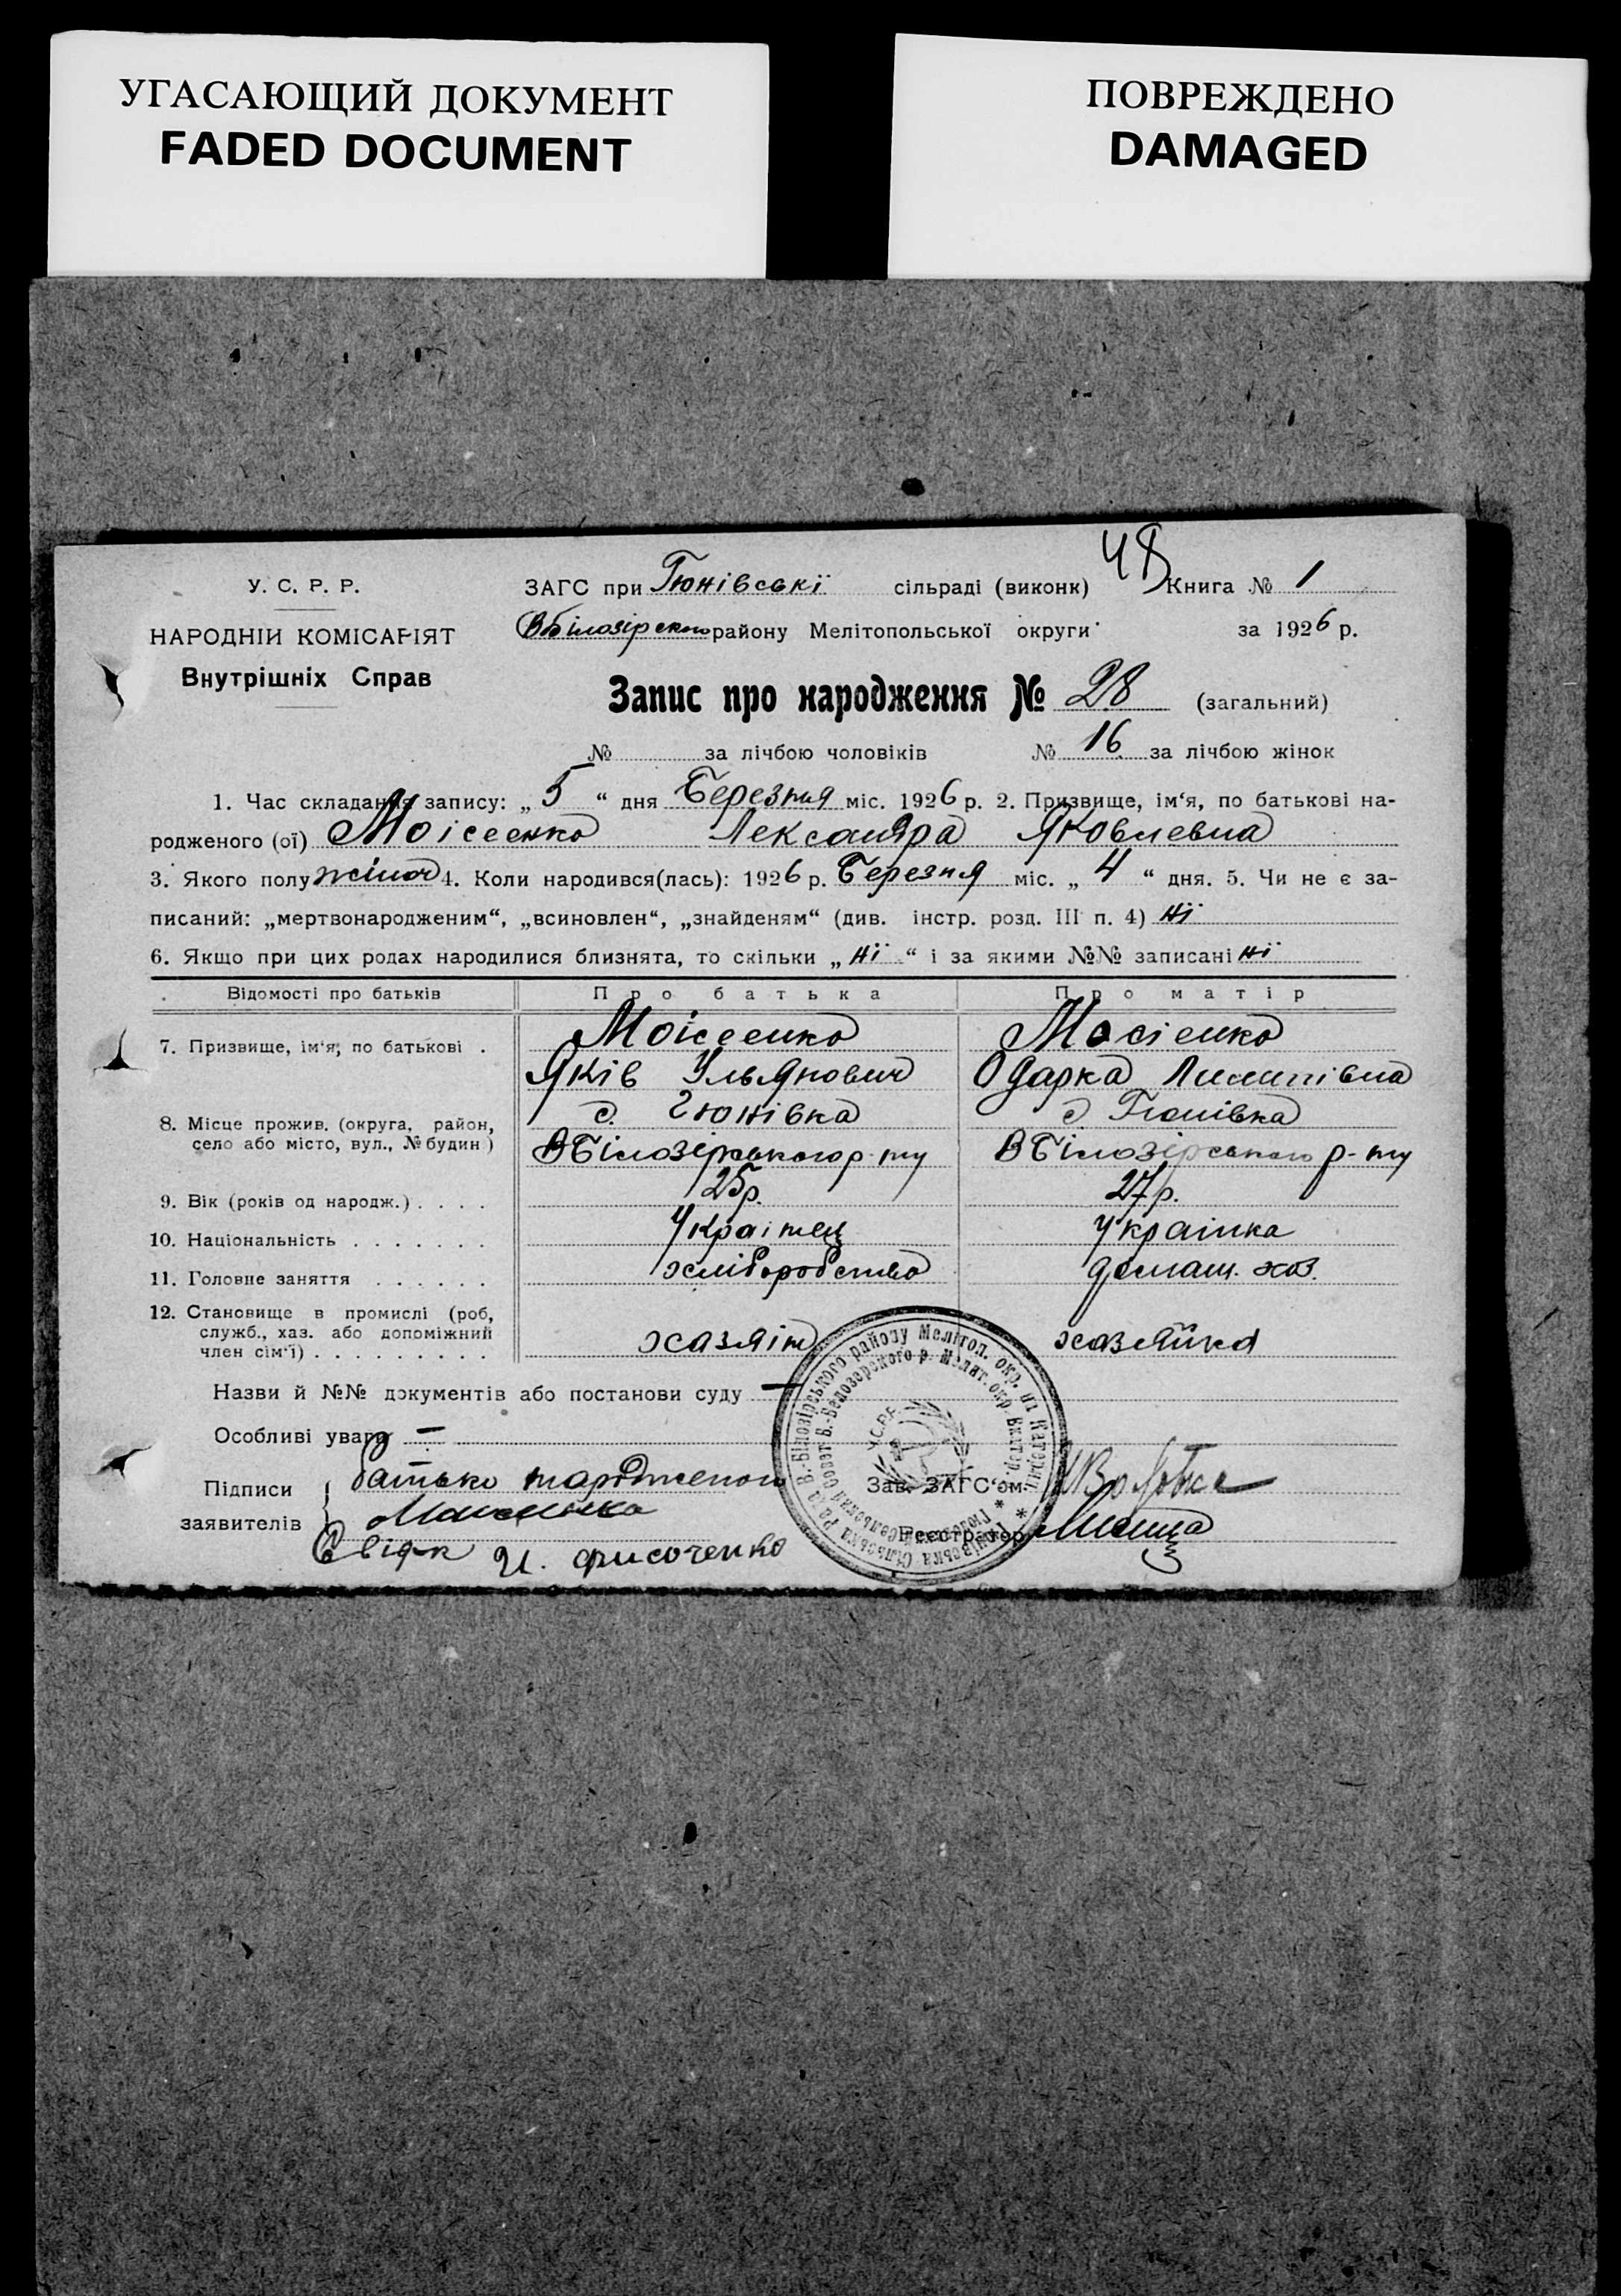 УГАСАЮЩИЙ ДОКУМЕНТ
FADED DOCUMENT
ПОВРЕЖДЕНО
DAMAGED
48
У. С. Р. Р.
НАРОДНІЙ КОМІСАРІЯТ
Внутрішніх Справ
ЗАГС при Гюнівські сільраді (виконк) Книга № 1
ВБілозірського району Мелітопольської округи за 1926 р.
Запис про народження № 28 (загальний)
№ за лічбою чоловіків № 16 за лічбою жінок
1. Час складання запису: „ 5 “ дня Березня міс. 1926 р. 2. Призвище, ім‘я, по батькові на-
родженого (ої) Моісеенко Лександра Яковлевна
3. Якого полу жіноч 4. Коли народився(лась): 1926 р. Березня міс. „ 4 “ дня. 5. Чи не є за-
писаний: „мертвонародженим“, „всиновлен“, „знайденям“ (див. інстр. розд. III п. 4) ні
6. Якщо при цих родах народилися близнята, то скільки „ ні “ і за якими №№ записані ні
Відомості про батьків Про батька Про матір
7. Призвище, ім‘я, по батькові . Моісеенко Мосіенко
Яків Ульянович Одарка Пилипівна
8. Місце прожив. (округа, район, с. Гюнівка с. Гюнівка
село або місто, вул., № будин) ВБілозірського р-ну ВБілозірського р-ну
9. Вік (років од народж.) . . . . 25р. 27р.
10. Національність . . . . . . . Украінец Украінка
11. Головне заняття . . . . . . хліборобство домаш. хоз.
12. Становище в промислі (роб,
служб., хаз. або допоміжний
член сім‘ї) . . . . . . . . . хазяін хазяйка
Назви й №№ документів або постанови суду —
Особливі уваги —
Підписи заявителів батько нарожденого
Зав. ЗАГС‘ом
Реєстратор
Свідок И.
У.С.Р.Р.